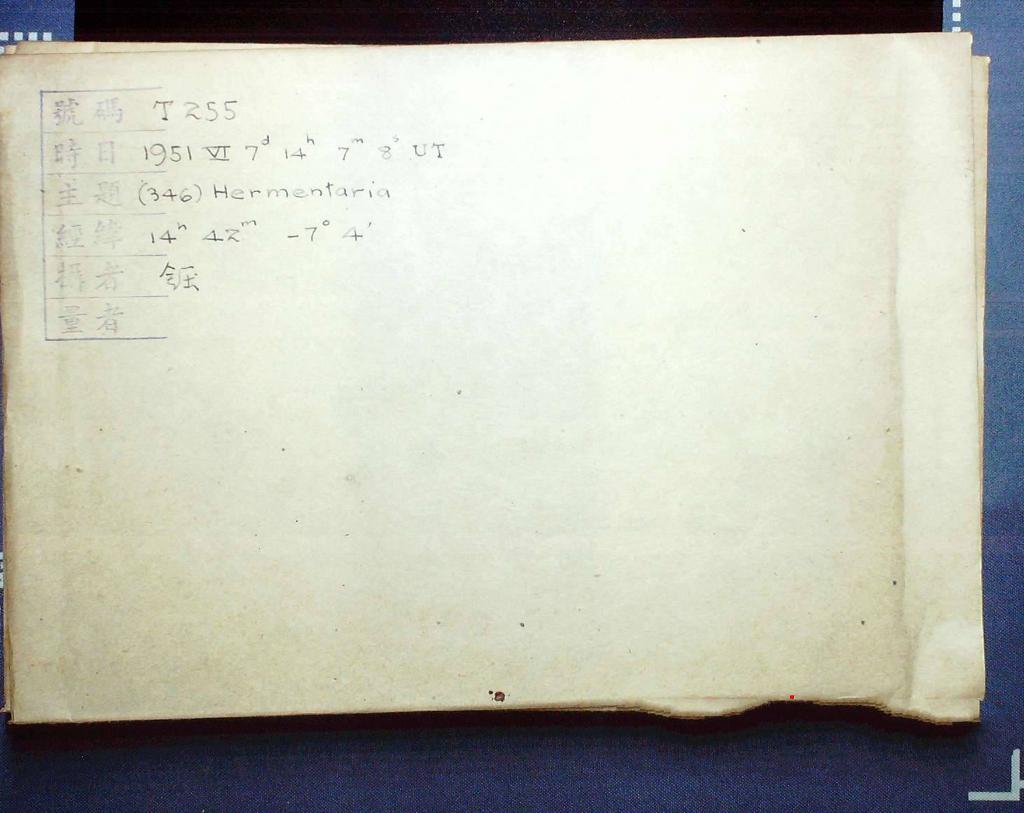 號碼 T 255
時日 1951 VI 7ᵈ 14ʰ 7ᵐ 8ˢ UT
主題 (346) Hermentaria
經緯 14ʰ 42ᵐ -7° 4'
者
量者